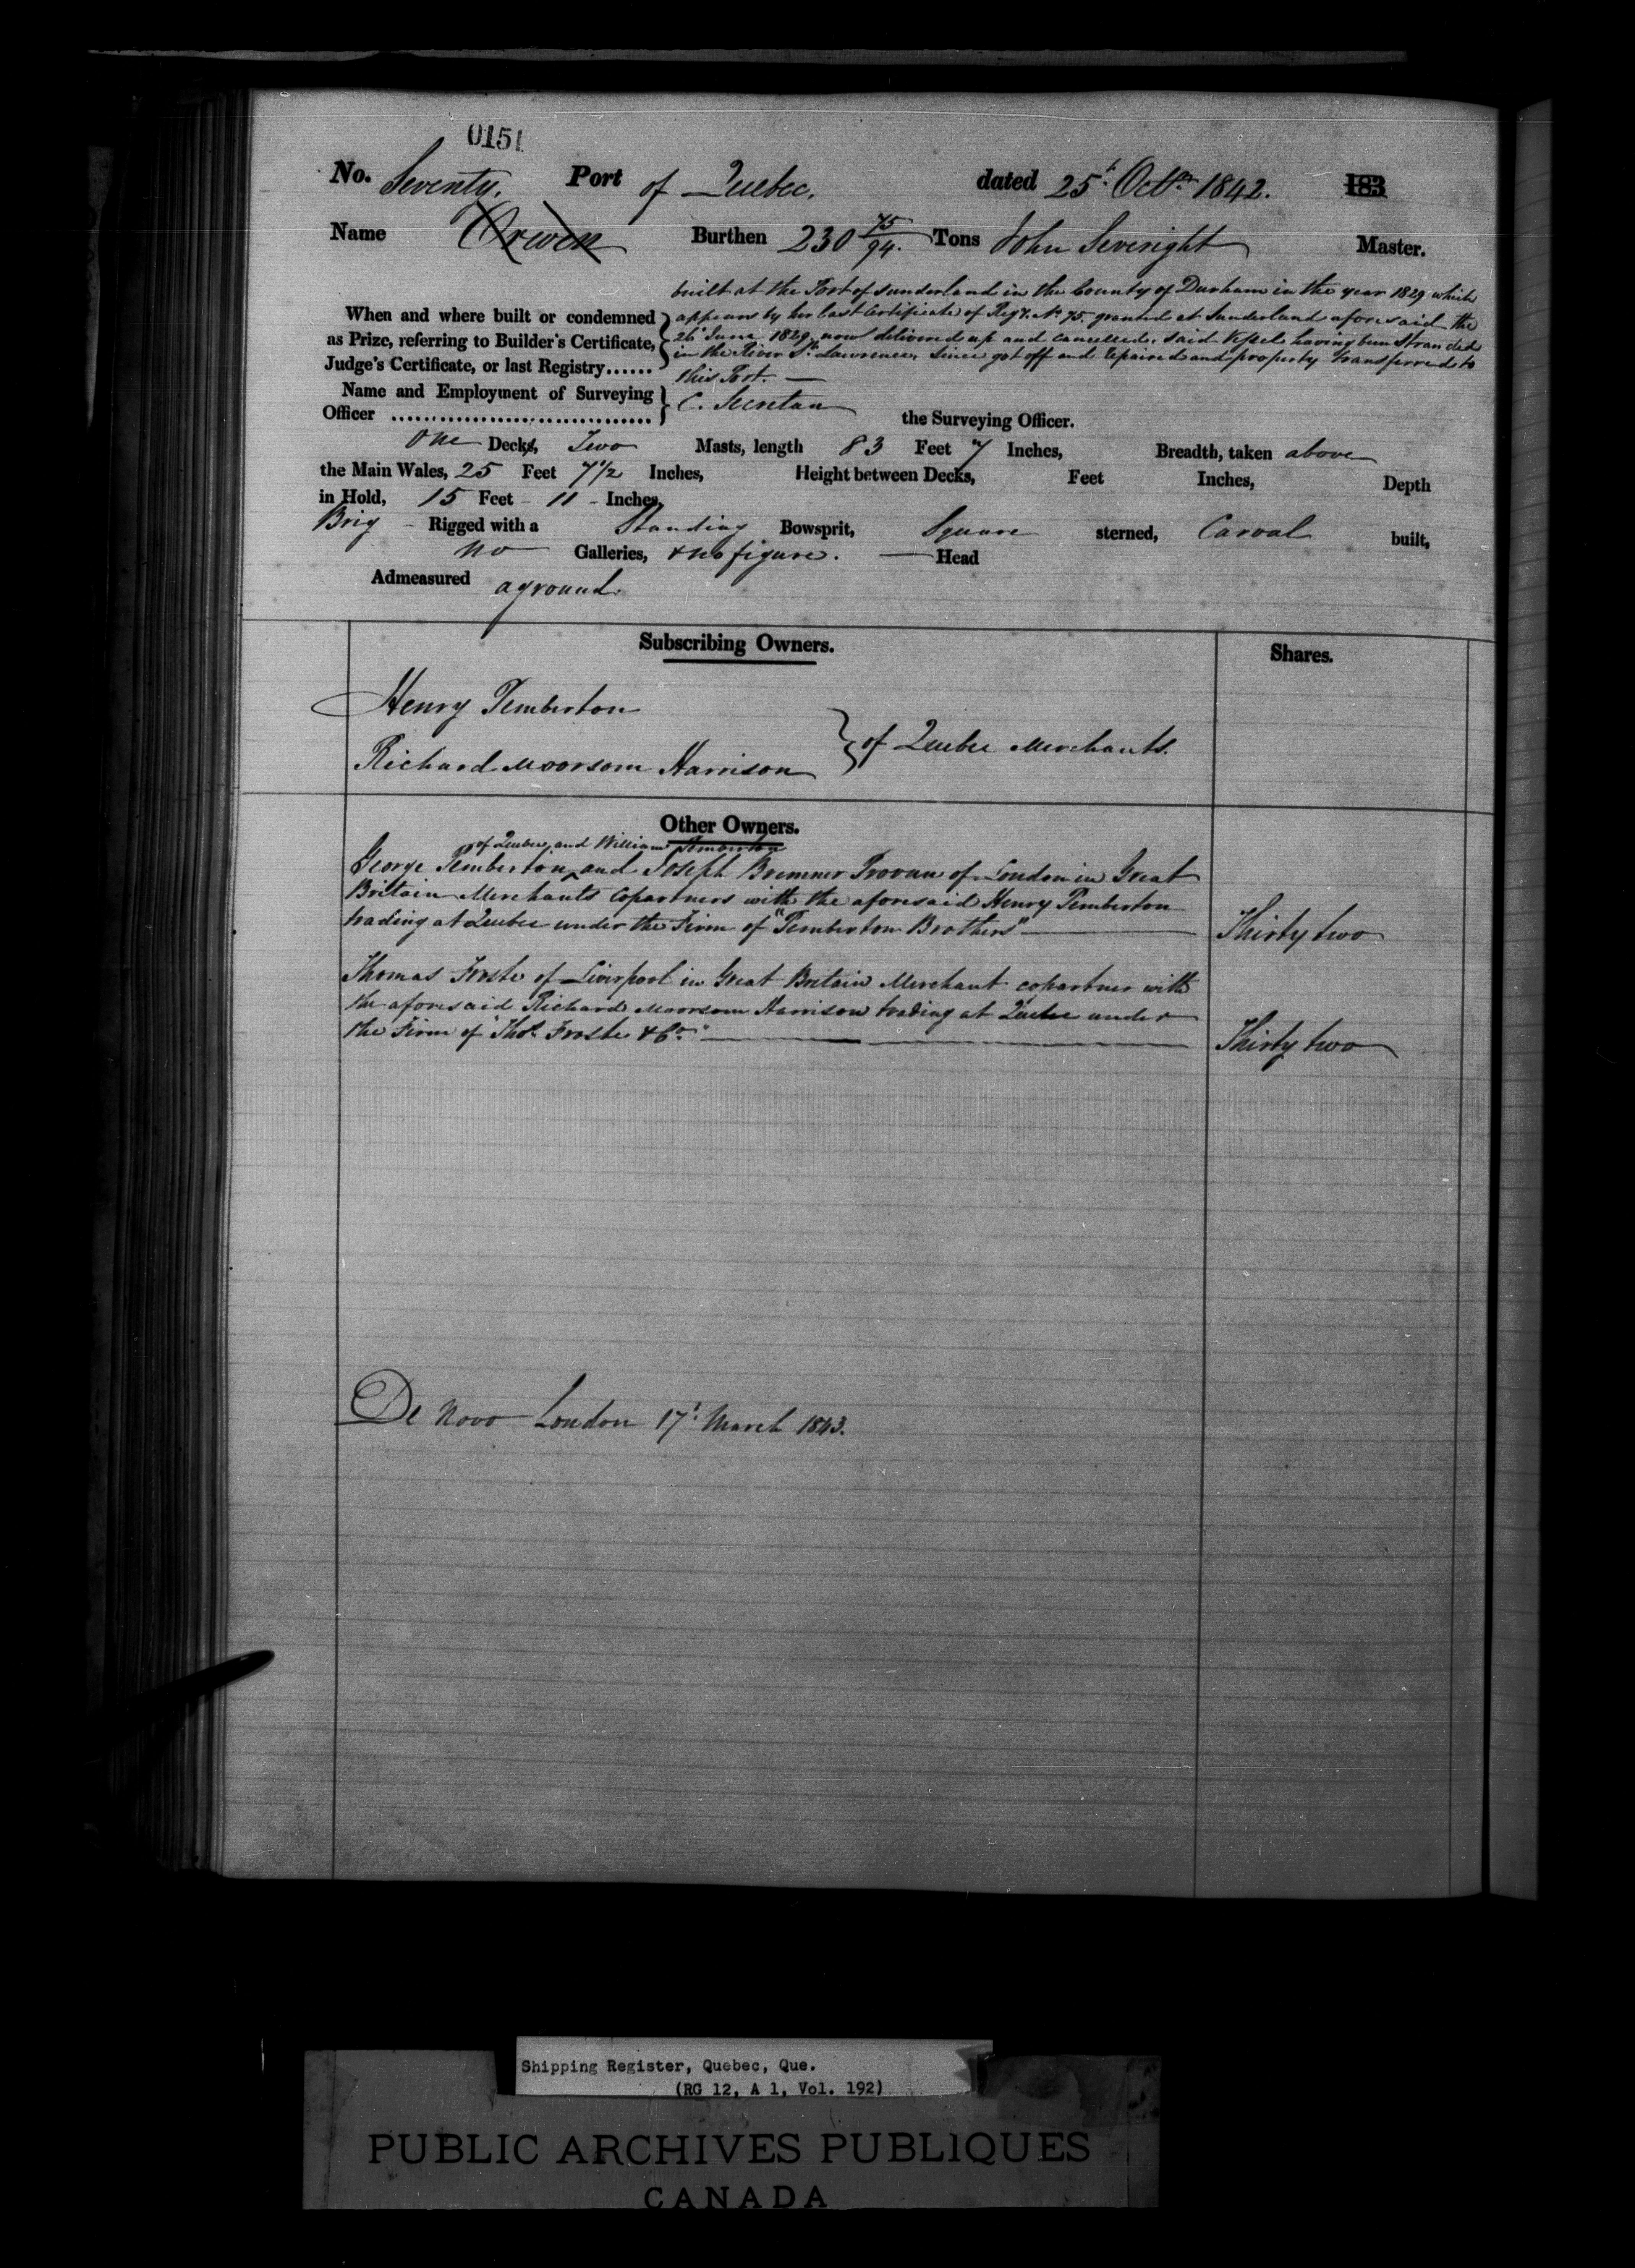 0151
No. Seventy. Port of Quebec. dated 25t. Octr. 1842. 183
Name Burthen 230 75/94. Tons John Severight Master.
built at the Port of Sunderland in the County of Durham in the year 1829 which
When and where built or condemned } appears by her last Certificate of Regy. No. 75. granted at Sunderland aforesaid the
as Prize, referring to Builder's Certificate, 26t June 1829, now delivered up and cancelled. Said Vessel having been Stranded
Judge's Certificate, or last Registry...... in the River St. Lawrence, Since got off and repaired and property transferred to
this Port. —
Name and Employment of Surveying }
Officer ................................ C. Secretan the Surveying Officer.
One Decks, Two Masts, length 83 Feet 7 Inches, Breadth, taken above
the Main Wales, 25 Feet 7 1/2 Inches, Height between Decks, Feet Inches, Depth
in Hold, 15 Feet - 11 - Inches,
Brig - Rigged with a Standing Bowsprit, Square sterned, Carval built,
no Galleries, & no figure. — Head
Admeasured aground.
Subscribing Owners. Shares.
Henry Pemberton
} of Quebec Merchants.
Richard Moorsom Harrison
Other Owners.
of Quebec, and William Pemberton
George Pemberton ^ and Joseph Bremner Provan of London in Great
Britain Merchants Copartners with the aforesaid Henry Pemberton
trading at Quebec under the Firm of "Pemberton Brothers" — Thirty two
Thomas Froste of Liverpool in Great Britain Merchant copartner with
the aforesaid Richard Moorsom Harrison trading at Quebec under
the Firm of "Thos. Froste & Co." — Thirty two
De Novo London 17t. March 1843.
Shipping Register, Quebec, Que.
(RG 12, A 1, Vol. 192)
PUBLIC ARCHIVES PUBLIQUES
CANADA